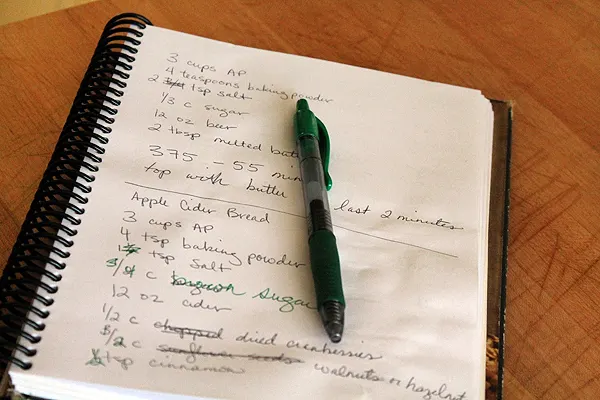 3 cups AP
4 teaspoons baking powder
2 tsp salt
1/3 c sugar
12 oz beer
2 tbsp melted
375 - 55 min
top with butter last 2 minutes
Apple Cider Bread
3 cups AP
4 tsp baking powder
tsp salt
c sugar
12 oz cider
1/2 c chopped dried cranberries
1/2 c sunflower seeds walnuts or hazelnut
tsp cinnamon